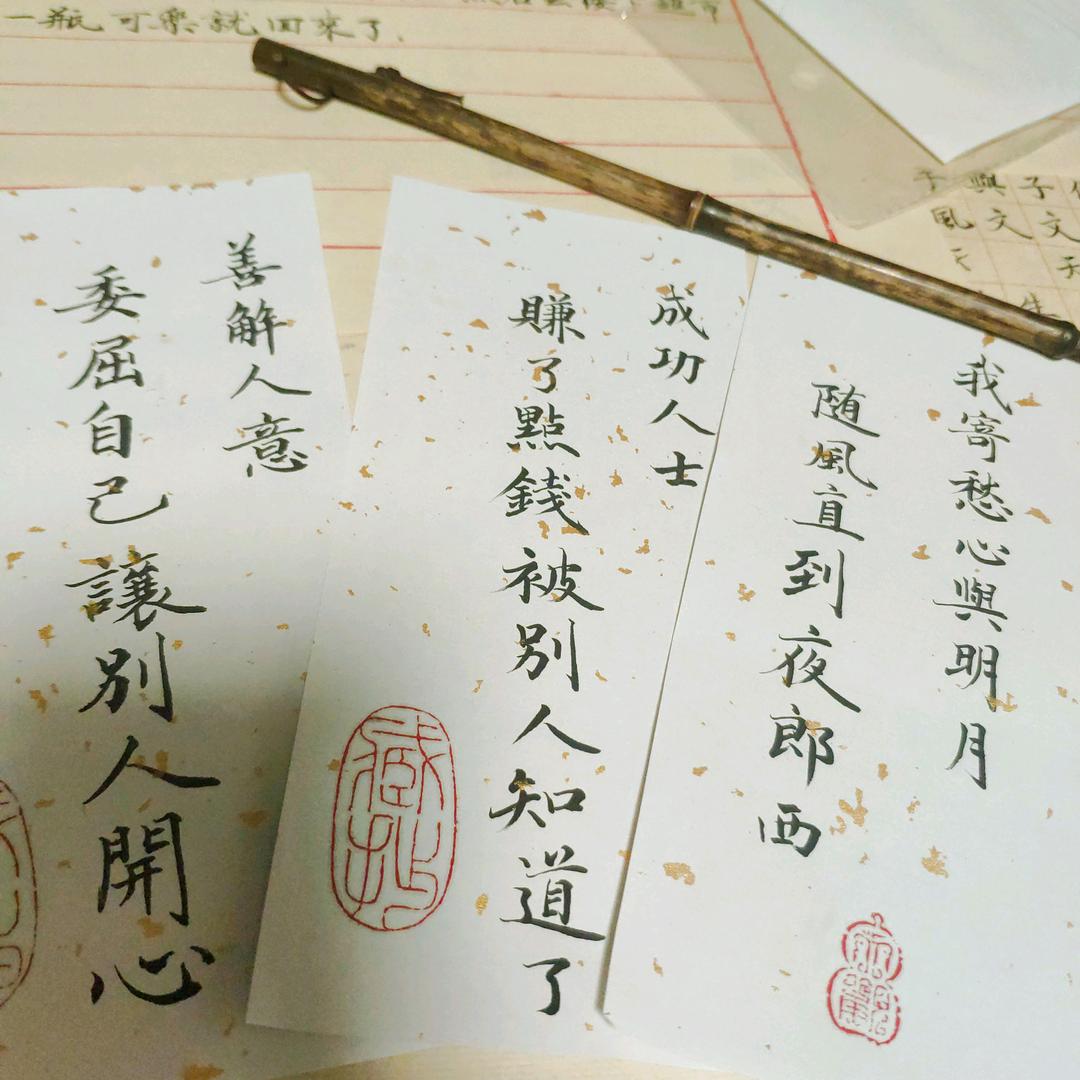 一瓶可樂就回來了.
我寄愁心與明月
随風直到夜郎西
成功人士
賺了點錢被別人知道了
善解人意
委屈自己讓別人開心
藏拙
子與子
風文文